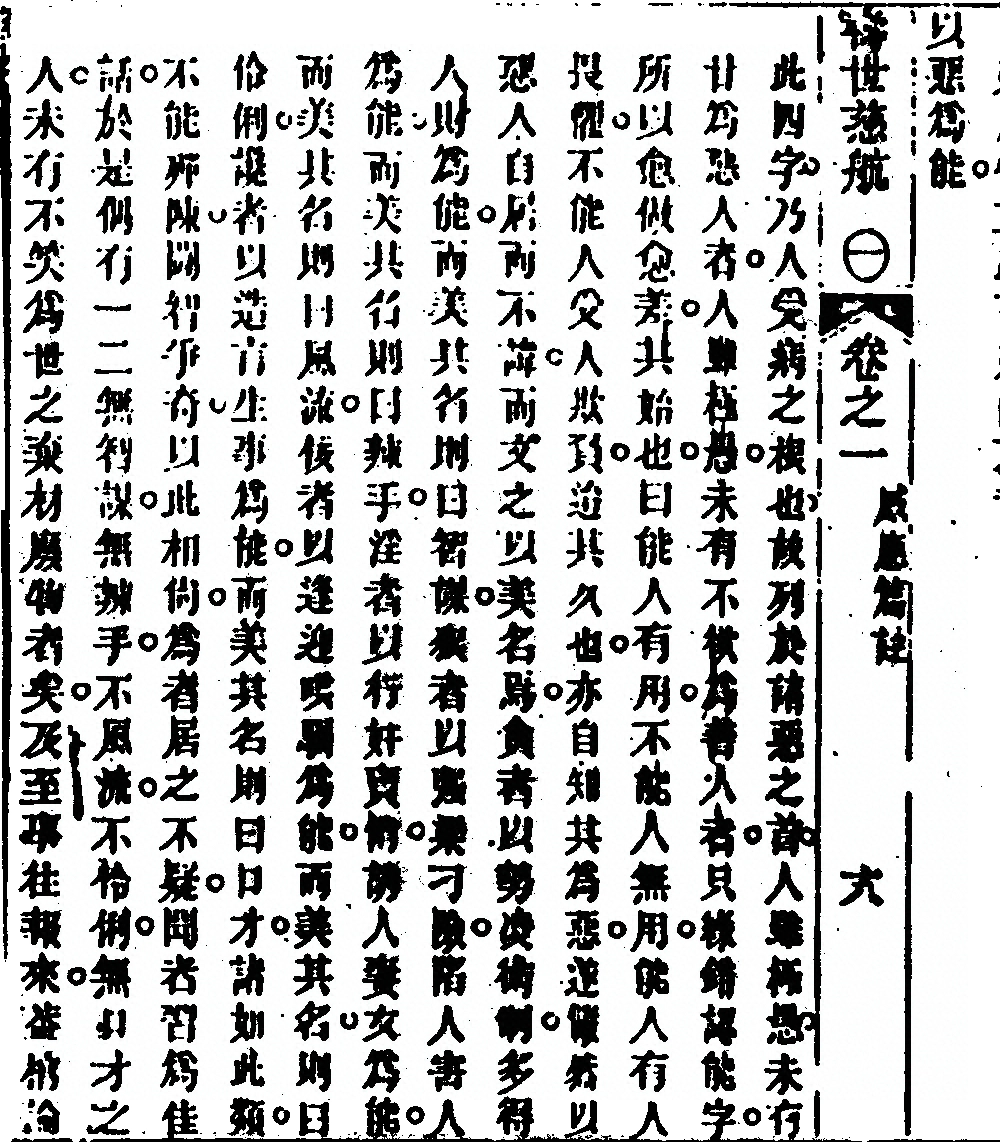 以惡爲能。
世慈航 ㊀ 卷之一 感應篇註 六
此四字。乃人受病之根也。故列於諸惡之首。人雖極愚。未有
甘爲惡人者。人雖極愚。未有不欲爲善人者。只緣錯認能字。
所以愈做愈差。其始也。曰能人有用。不能人無用。能人有人
畏懼。不能人父人欺負。迨其久也。亦自知其爲惡。遂儼然以
惡人自居而不諱。而文之以美名焉。貪者以勢凌術制。多得
人財爲能。而美其名則曰智謀。狠者以兇梁刁險。陷人害人
爲能。而美其名則曰辣手。淫者以行奸賣俏。誘人妻女爲能。
而美其名則曰風流。佞者以逢迎哄騙爲能。而美其名則曰
伶俐。讒者以造言生事爲能。而美其名則曰口才。諸如此類。
不能殫陳。鬪智爭奇。以此相尙。爲者居之不疑。聞者習爲佳
話。於是偶有一二無智謀。無辣手。不風流。不伶俐。無口才之
人。未有不笑爲世之棄材廢物者矣。及至事往報來。蓋棺論